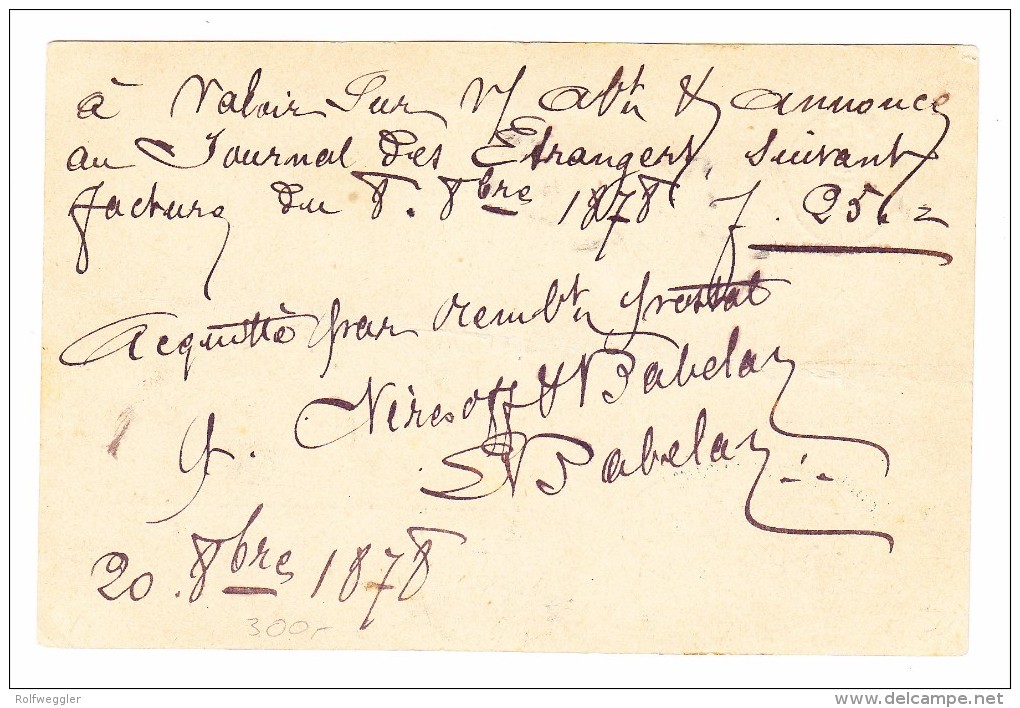 à Valoir Sur V/ abt & annonce
au Journal des Etrangers, Suivant
facture du 8. 8bre 1878 f. 25.=
Acquitté par rembt postal
p. Nércoff & Babelay
Babelay
20. 8bre 1878
300,-
Rolfweggler
www.delcampe.net